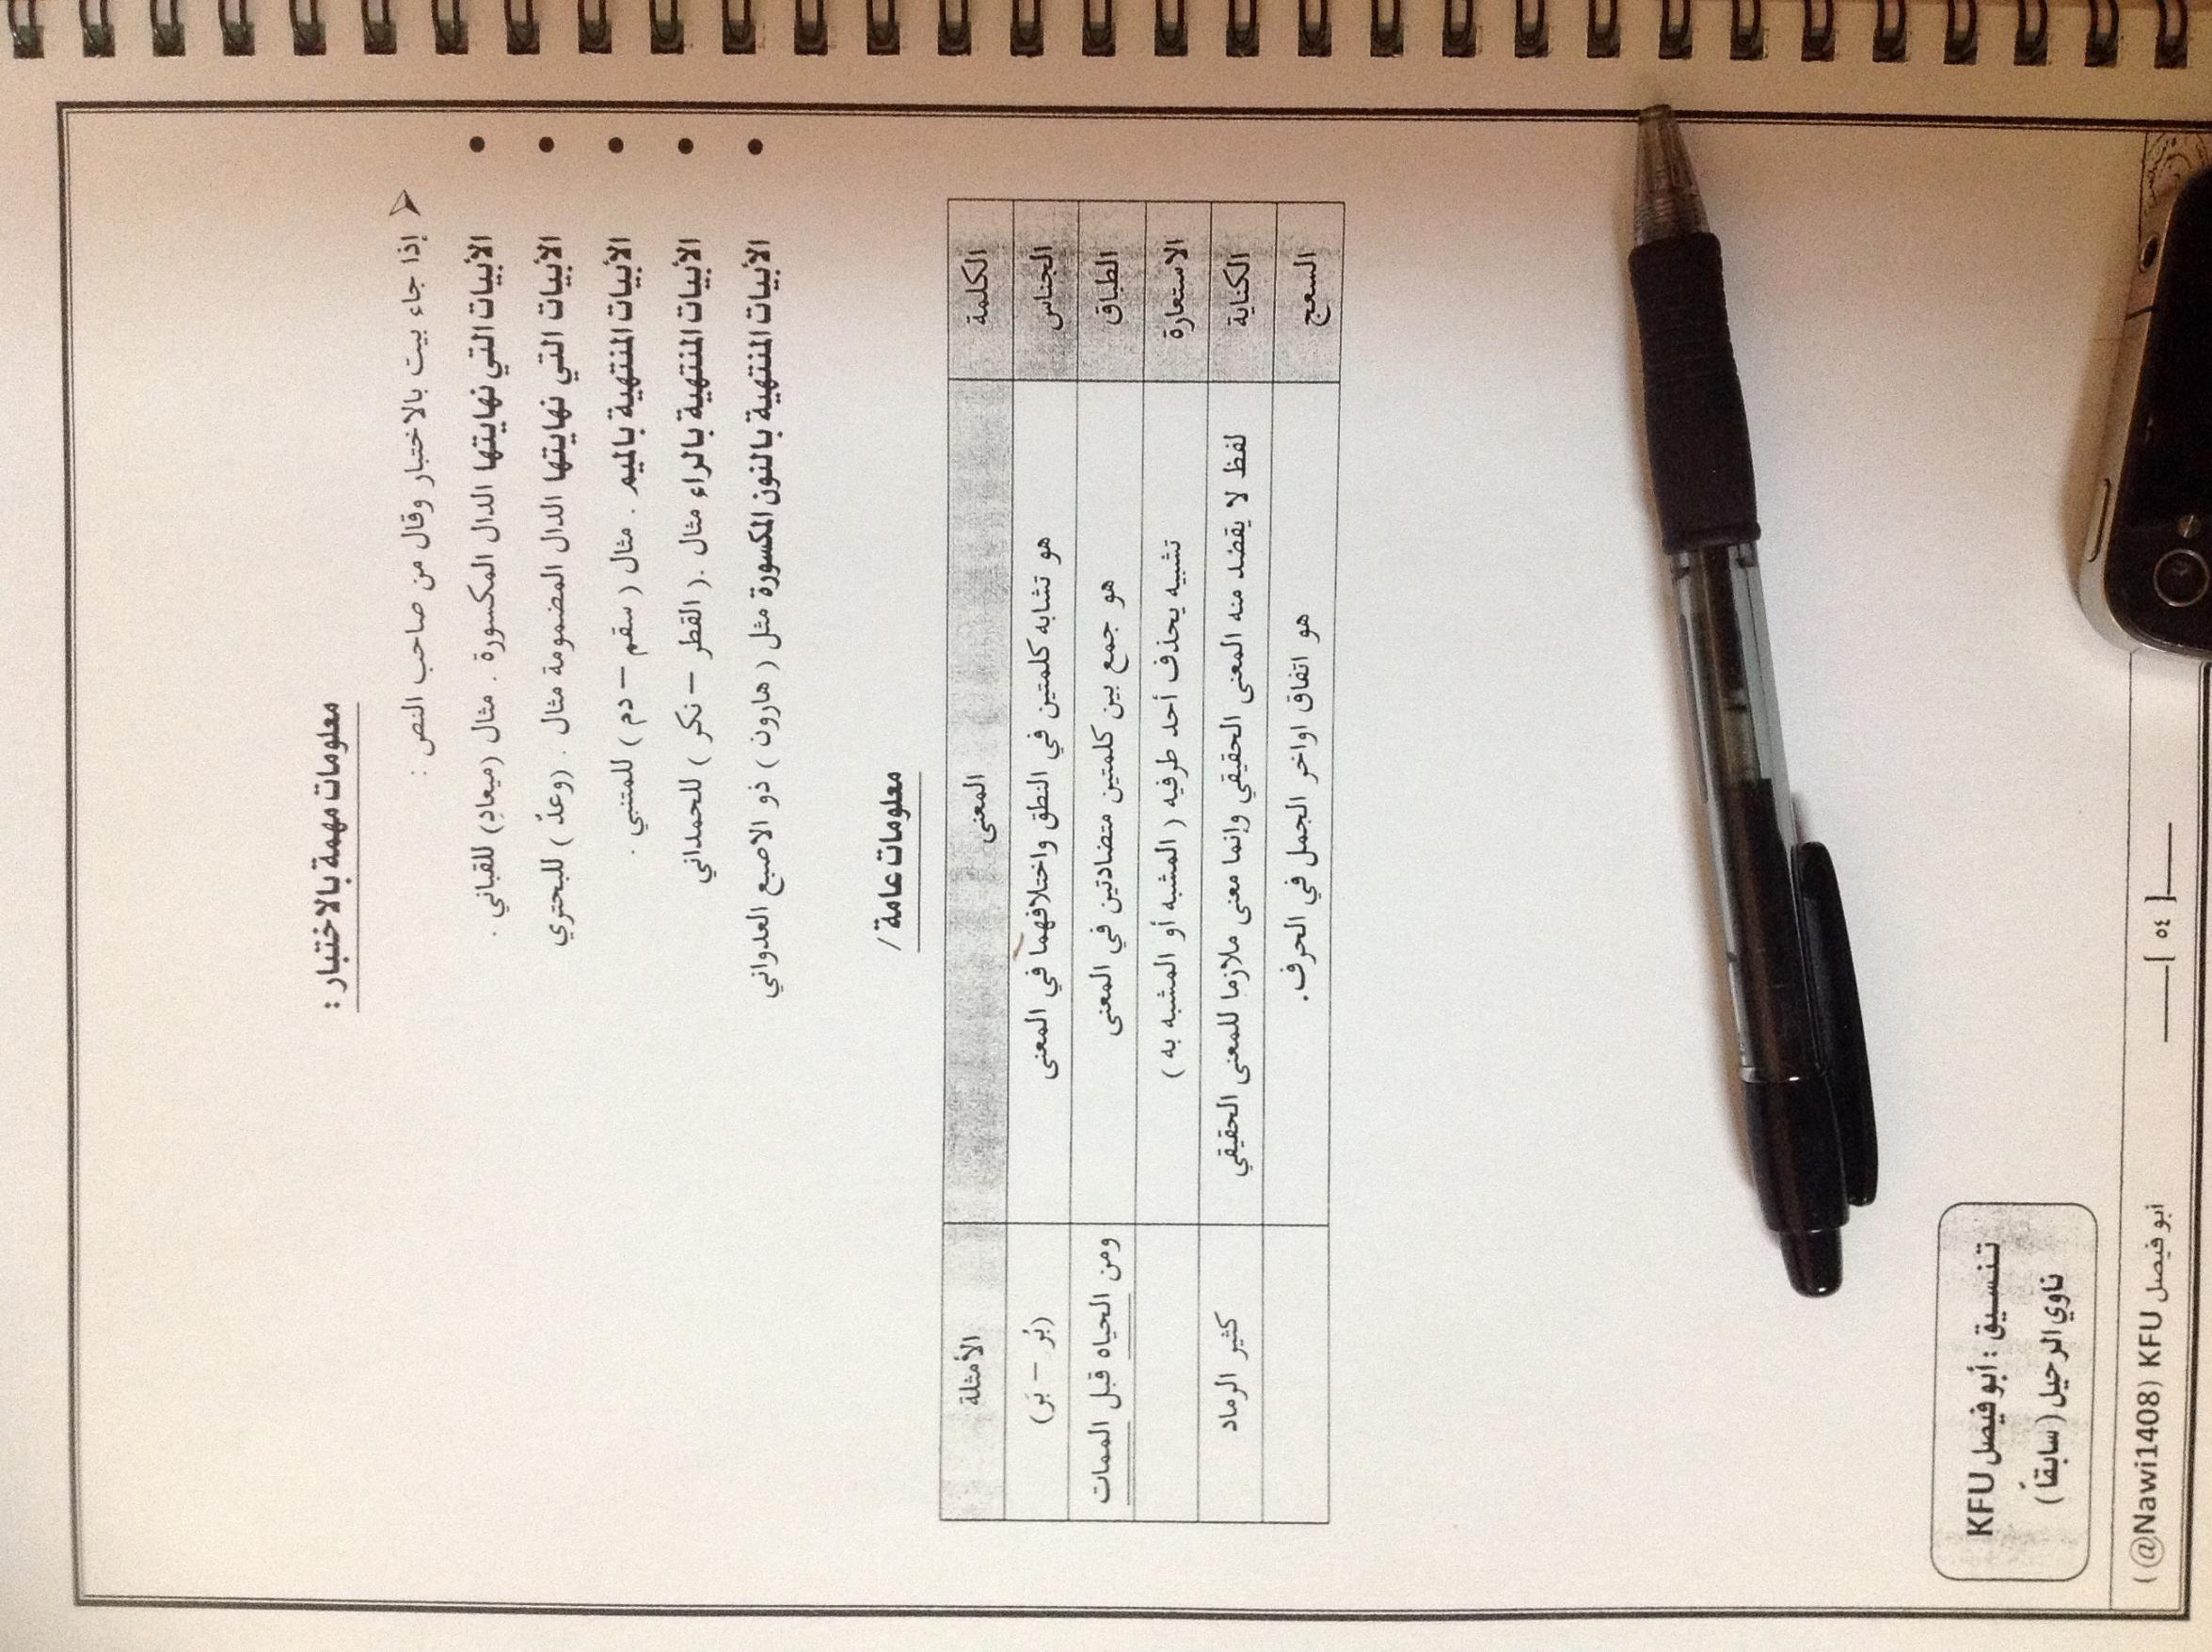 معلومات مهمة بالاختبار :
إذا جاء بيت بالاختبار وقال من صاحب النص :
الأبيات التي نهايتها الدال المكسورة . مثال (ميعادِ) للقباني .
الأبيات التي نهايتها الدال المضمومة مثال . (وعدٌ ) للبحتري
الأبيات المنتهية بالميم . مثال ( سقم – دم ) للمتنبي .
الأبيات المنتهية بالراء مثال .( القطر – نكر ) للحمداني
الأبيات المنتهية بالنون المكسورة مثل ( هارون ) ذو الاصبع العدواني
معلومات عامة /
الكلمة المعنى الأمثلة
الجناس هو تشابه كلمتين في النطق واختلافهما في المعنى (بُر – بَر)
الطباق هو جمع بين كلمتين متضادتين في المعنى ومن الحياه قبل الممات
الاستعارة تشبيه يحذف أحد طرفيه ( المشبه أو المشبه به )
الكناية لفظ لا يقصد منه المعنى الحقيقي وإنما معنى ملازما للمعنى الحقيقي كثير الرماد
السعج هو اتفاق اواخر الجمل في الحرف.
تنسيق : أبو فيصل KFU
ناوي الرحيل (سابقاً)
[ ٥٤ ]
أبو فيصل KFU (@Nawi1408)